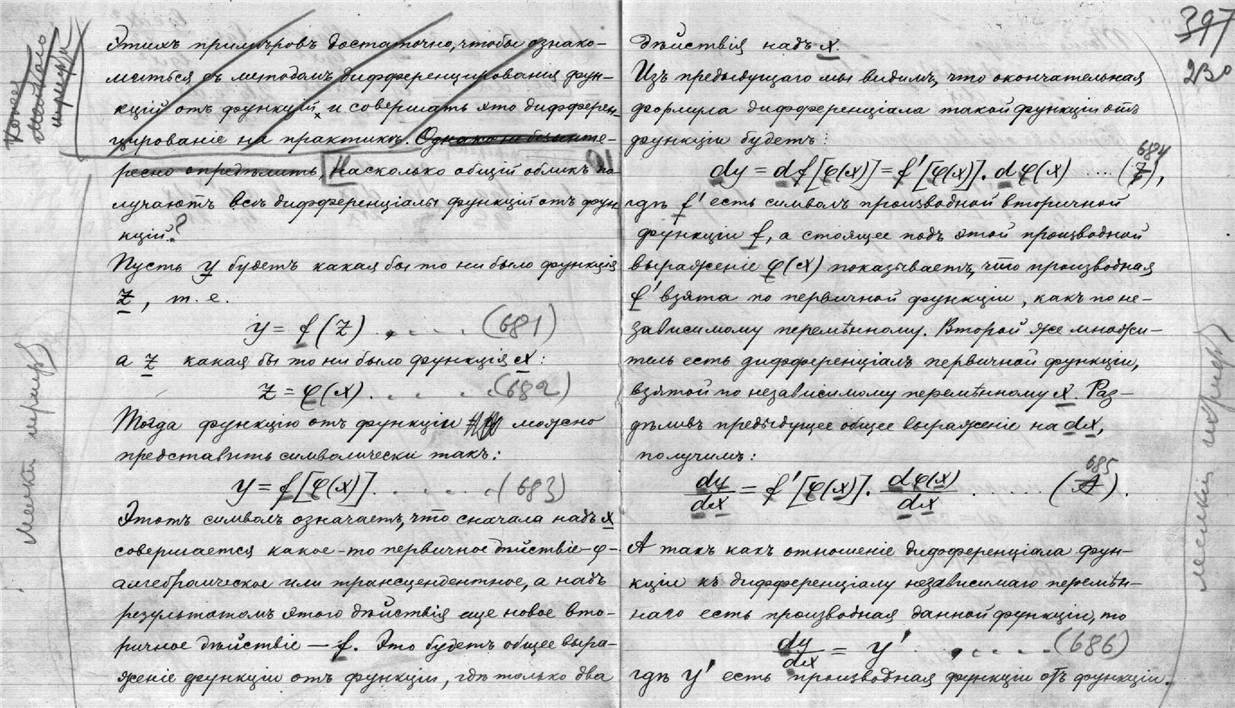 397
230
Этихъ примѣровъ достаточно, чтобы ознако-
миться съ методомъ дифференцированія фун-
кцій отъ функцій, и совершать это дифферен-
цированіе на практикѣ. Однако не безынте-
ресно опредѣлить, Насколько общій обликъ по-
лучаютъ всѣ дифференціалы функцій отъ фун-
кцій?
Пусть y будетъ какая бы то ни было функція
z, т. е.
y = f(z) . . . . . (681)
а z какая бы то ни было функція x:
z = φ(x) . . . . . (682)
Тогда функцію отъ функціи можно
представить символически такъ:
y = f[φ(x)] . . . . . (683)
Этотъ символъ означаетъ, что сначала надъ x
совершается какое-то первичное дѣйствіе-φ-
алгебраическое или трансцендентное, а надъ
результатомъ этого дѣйствія еще новое вто-
ричное дѣйствіе — f. Это будетъ общее выра-
женіе функціи отъ функціи, гдѣ только два
дѣйствія надъ x.
Изъ предыдущаго мы видимъ, что окончательная
формула дифференціала такой функціи отъ
функціи будетъ:
dy = df[φ(x)] = f'[φ(x)].dφ(x) .... (684),
гдѣ f' есть символъ производной вторичной
функціи f, а стоящее подъ этой производной
выраженіе φ(x) показываетъ, что производная
f' взята по первичной функціи, какъ по не-
зависимому перемѣнному. Второй же множи-
тель есть дифференціалъ первичной функціи,
взятой по независимому перемѣнному x. Раз-
дѣливъ предыдущее общее выраженіе на dx,
получимъ:
dy/dx = f'[φ(x)]. dφ(x)/dx . . . . . . (685).
А такъ какъ отношеніе дифференціала фун-
кціи къ дифференціалу независимаго перемѣн-
наго есть производная данной функціи, то
dy/dx = y' . . . . . (686)
гдѣ y' есть производная функціи отъ функціи.